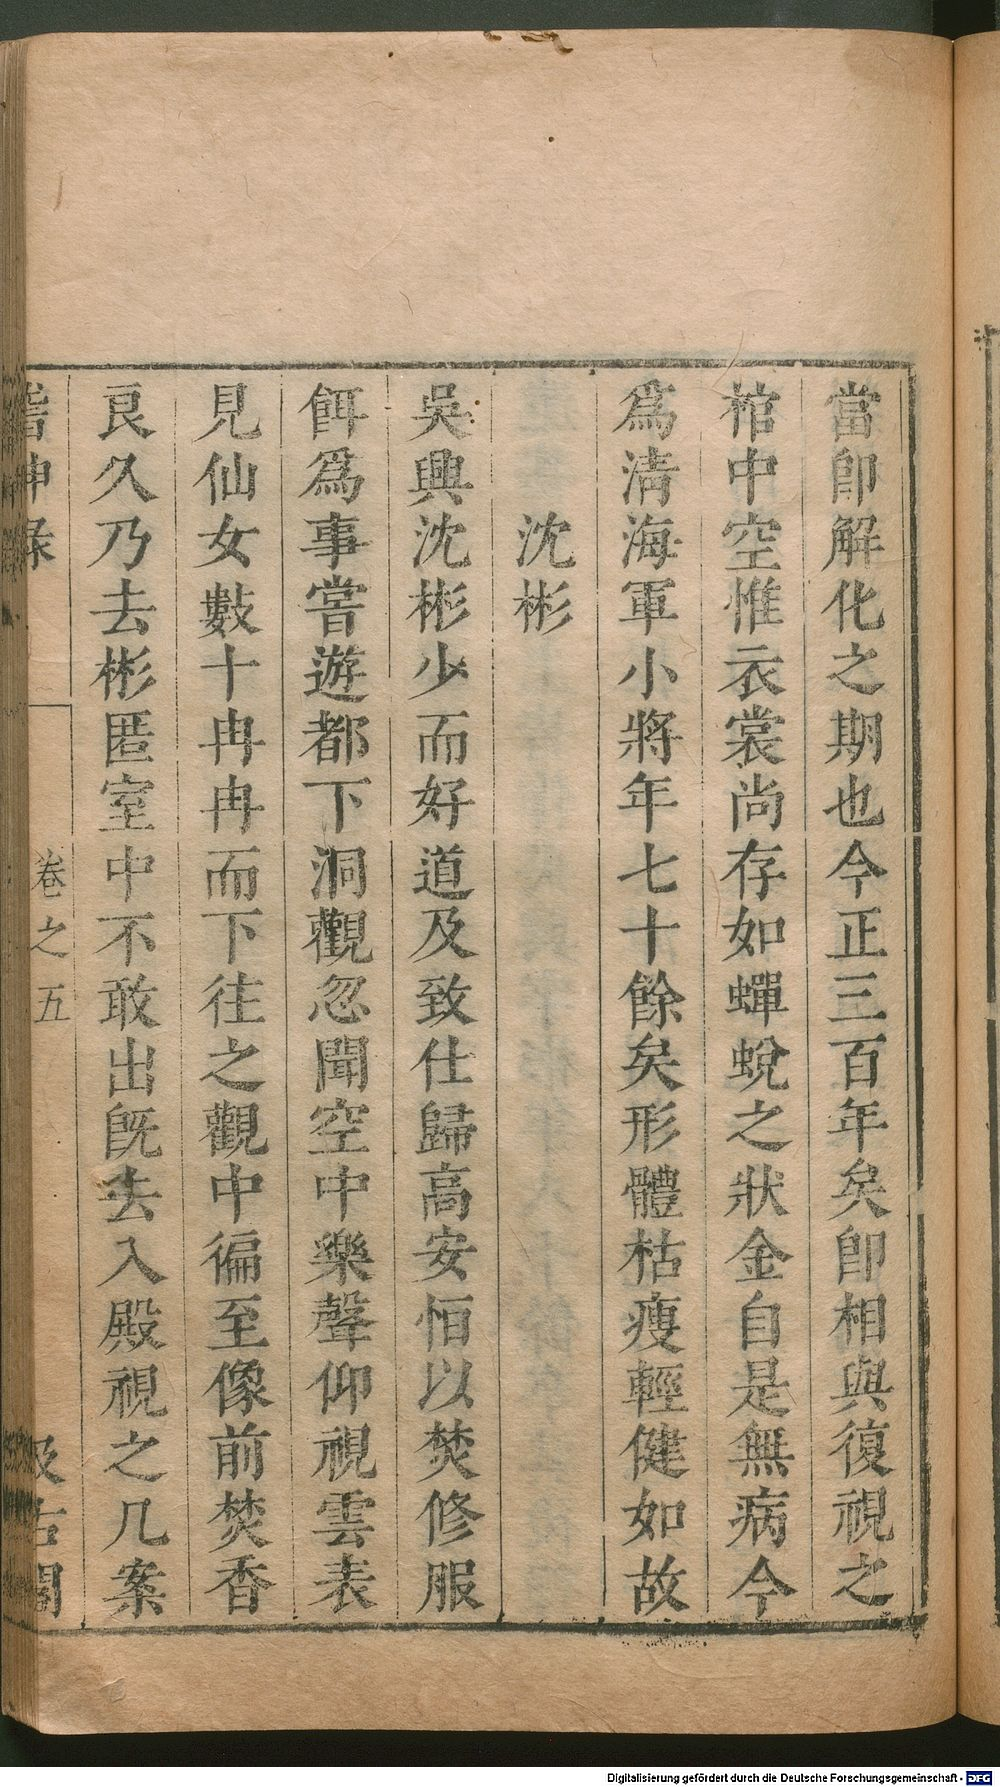 當卽解化之期也今正三百年矣卽相與復視之
棺中空惟衣裳尚存如蟬蛻之狀金自是無病今
爲淸海軍小將年七十餘矣形體枯瘦輕健如故
沈彬
吳興沈彬少而好道及致仕歸高安恒以焚修服
餌爲事嘗遊都下洞觀忽聞空中樂聲仰視雲表
見仙女數十冉冉而下往之觀中徧至像前焚香
良久乃去彬匿室中不敢出旣去入殿視之几案
稽神錄 卷之五 汲古閣
Digitalisierung gefördert durch die Deutsche Forschungsgemeinschaft - DFG